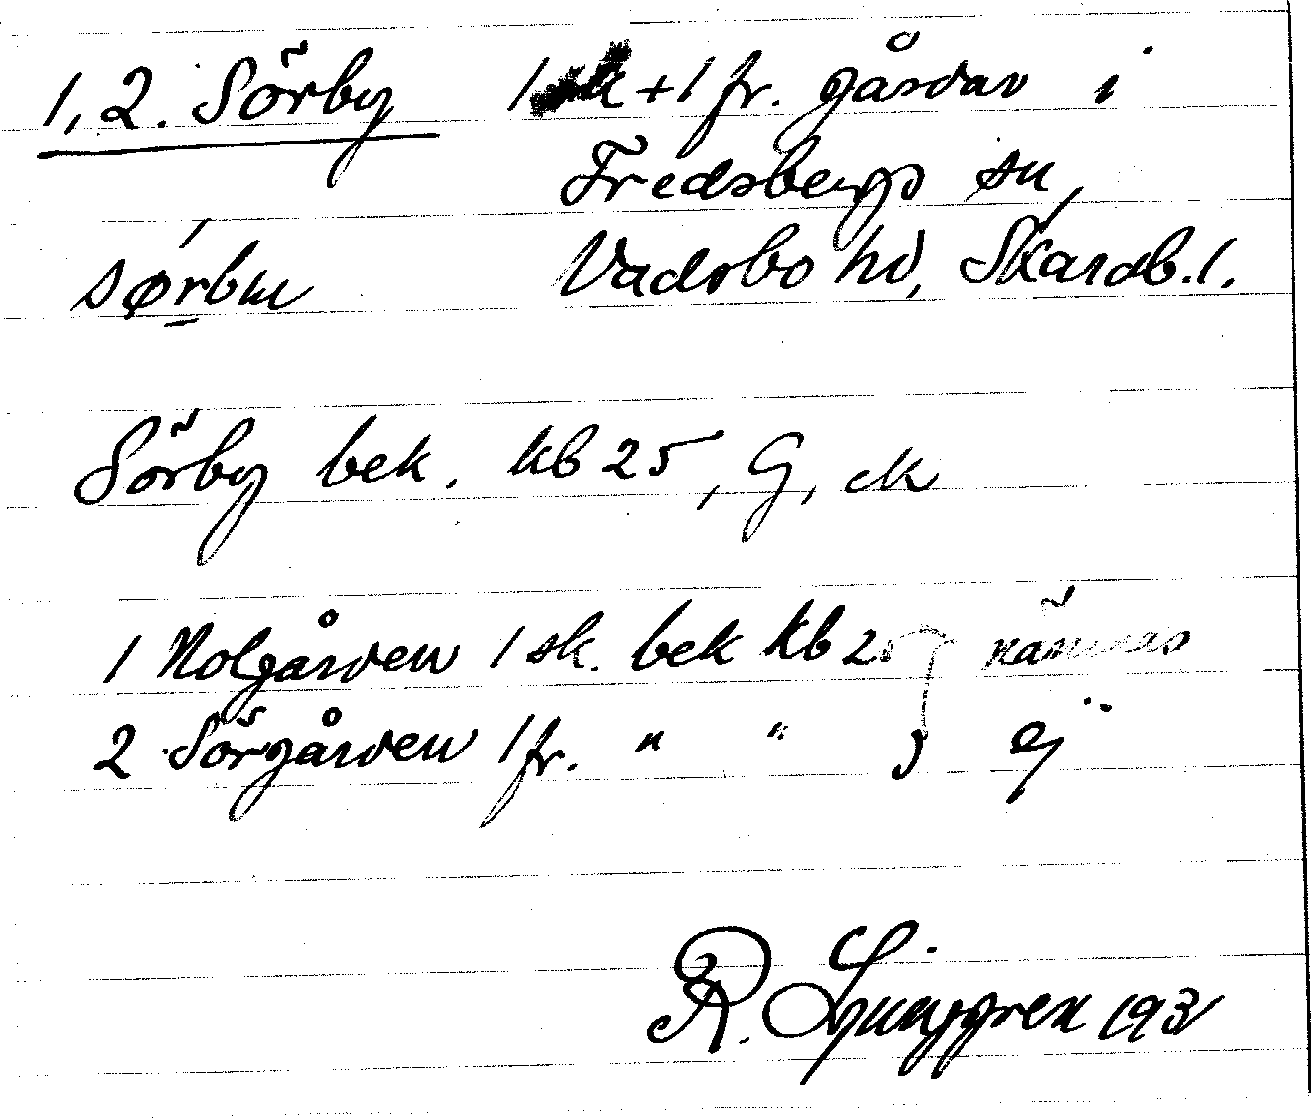 1,2. Sörby 1 sk + 1 fr. gårdar i
Fredsbergs sn,
sørbɯ Vadsbo hd, Skarab.l.
Sörby bek. kb 25, G, ek
1 Nolgården 1 sk. bek kb 25 } nämnas
2 Sörgården 1 fr. " " } ej
R. Ljunggren 193